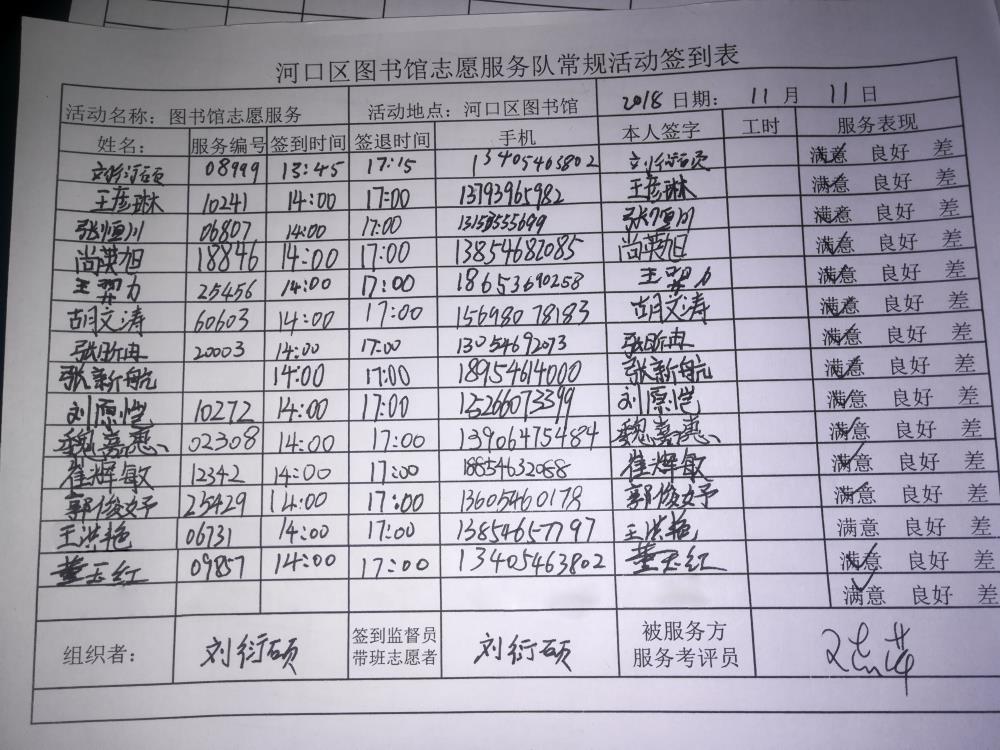 河口区图书馆志愿服务队常规活动签到表
活动名称：图书馆志愿服务 活动地点：河口区图书馆 2018 日期： 11 月 11 日
姓名： 服务编号 签到时间 签退时间 手机 本人签字 工时 服务表现
刘衍硕 08999 13:45 17:15 13405463802 刘衍硕 满意 良好 差
王彦琳 10241 14:00 17:00 13793965982 王彦琳 满意 良好 差
张恒川 06807 14:00 17:00 张恒川 满意 良好 差
尚英旭 18846 14:00 17:00 13854682085 尚英旭 满意 良好 差
王羿力 25456 14:00 17:00 18653690258 王羿力 满意 良好 差
胡文涛 60603 14:00 17:00 15698078183 胡文涛 满意 良好 差
张昕冉 20003 14:00 17:00 13054692073 张昕冉 满意 良好 差
张新航 14:00 17:00 18954614000 张新航 满意 良好 差
刘原恺 10272 14:00 17:00 15266073399 刘原恺 满意 良好 差
魏嘉惠 02308 14:00 17:00 13906475484 魏嘉惠 满意 良好 差
崔辉敏 12342 14:00 17:00 18854632088 崔辉敏 满意 良好 差
郭俊妤 25429 14:00 17:00 13605460178 郭俊妤 满意 良好 差
王洪艳 06731 14:00 17:00 13854657797 王洪艳 满意 良好 差
董玉红 09857 14:00 17:00 13405463802 董玉红 满意 良好 差
满意 良好 差
组织者： 刘衍硕 签到监督员 刘衍硕 被服务方
带班志愿者 服务考评员